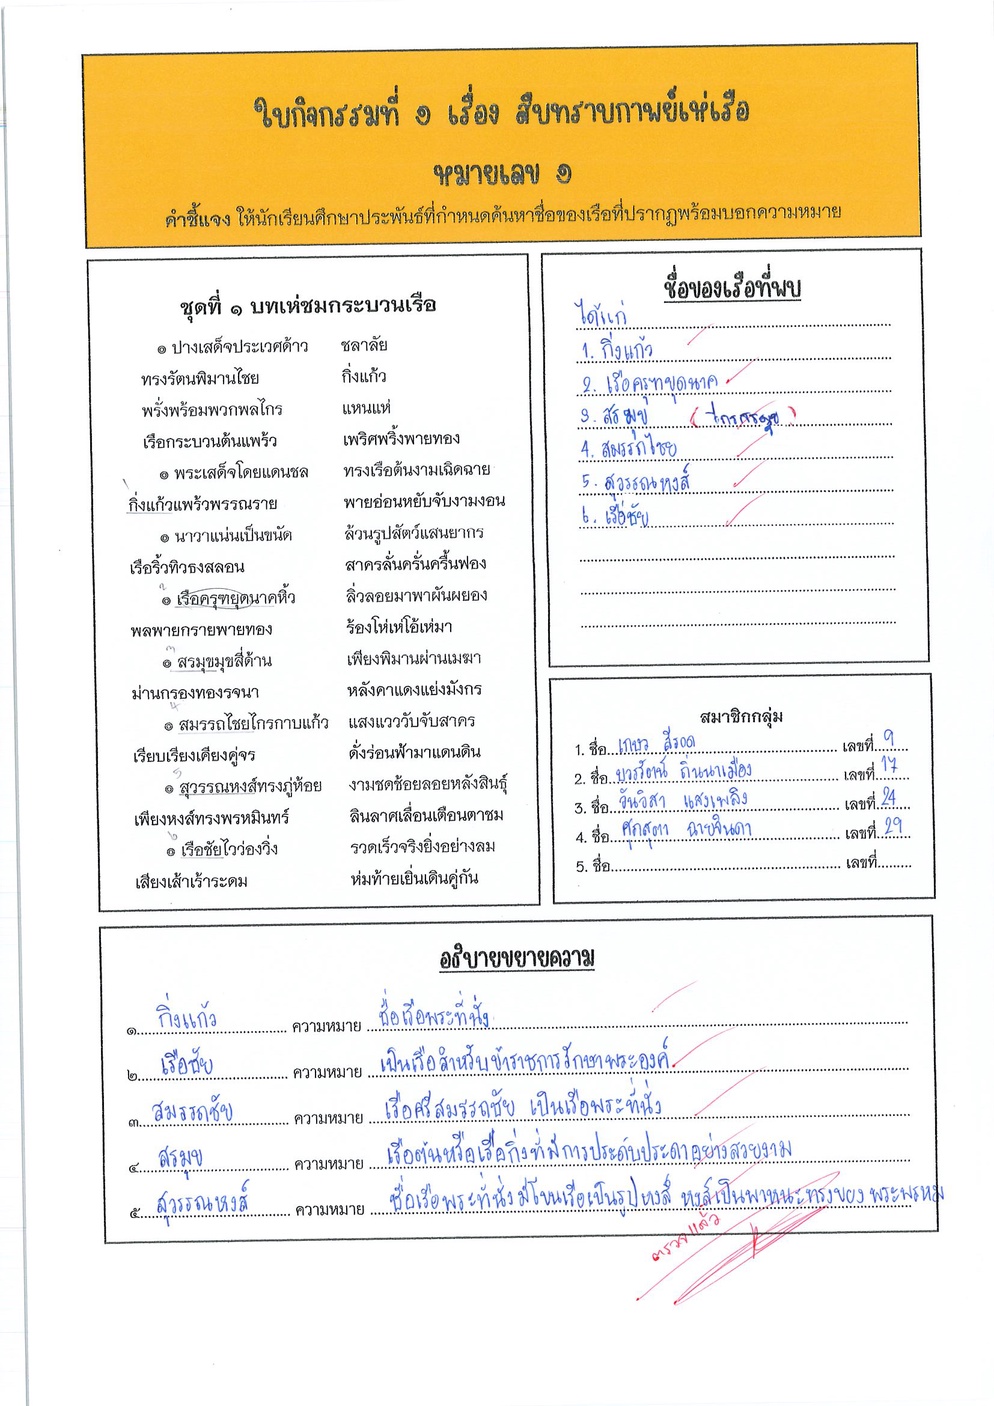 ใบกิจกรรมที่ ๑ เรื่อง สืบทราบกาพย์เห่เรือ
หมายเลข ๑
คำชี้แจง ให้นักเรียนศึกษาประพันธ์ที่กำหนดค้นหาชื่อของเรือที่ปรากฏพร้อมบอกความหมาย
ชุดที่ ๑ บทเห่ชมกระบวนเรือ
๏ ปางเสด็จประเวศด้าว ชลาลัย
ทรงรัตนพิมานไชย กิ่งแก้ว
พรั่งพร้อมพวกพลไกร แหนแห่
เรือกระบวนต้นแพร้ว เพริศพริ้งพายทอง
๏ พระเสด็จโดยแดนชล ทรงเรือต้นงามเฉิดฉาย
กิ่งแก้วแพร้วพรรณราย พายอ่อนหยับจับงามงอน
๏ นาวาแน่นเป็นขนัด ล้วนรูปสัตว์แสนยากร
เรือริ้วทิวธงสลอน สาครลั่นครั่นครื้นฟอง
๒
๏ เรือครุฑยุดนาคหิ้ว ลิ่วลอยมาพาผันผยอง
พลพายกรายพายทอง ร้องโห่เห่โอ้เห่มา
๓
๏ สรมุขมุขสี่ด้าน เพียงพิมานผ่านเมฆา
ม่านกรองทองรจนา หลังคาแดงแย่งมังกร
๔
๏ สมรรถไชยไกรกาบแก้ว แสงแวววับจับสาคร
เรียบเรียงเคียงคู่จร ดั่งร่อนฟ้ามาแดนดิน
๕
๏ สุวรรณหงส์ทรงภู่ห้อย งามชดช้อยลอยหลังสินธุ์
เพียงหงส์ทรงพรหมินทร์ ลินลาศเลื่อนเตือนตาชม
๖
๏ เรือชัยไวว่องวิ่ง รวดเร็วจริงยิ่งอย่างลม
เสียงเส้าเร้าระดม ห่มท้ายเยิ่นเดินคู่กัน
ชื่อของเรือที่พบ
ได้แก่
1. กิ่งแก้ว
2. เรือครุฑยุดนาค
3. สรมุข (ไกรสรมุข)
4. สมรรถไชย
5. สุวรรณหงส์
6. เรือชัย
สมาชิกกลุ่ม
1. ชื่อ เลขที่ 9
2. ชื่อ เลขที่ 17
3. ชื่อ วันวิสา แสงเพลิง เลขที่ 24
4. ชื่อ ฉายจินดา เลขที่ 29
5. ชื่อ เลขที่
อธิบายขยายความ
๑. กิ่งแก้ว ความหมาย ชื่อเรือพระที่นั่ง
๒. เรือชัย ความหมาย เป็นเรือสำหรับข้าราชการรักษาพระองค์
๓. สมรรถชัย ความหมาย เรือศรีสมรรถชัย เป็นเรือพระที่นั่ง
๔. สรมุข ความหมาย เรือต้นหรือเรือกิ่งที่มีการประดับประดาอย่างสวยงาม
๕. สุวรรณหงส์ ความหมาย ชื่อเรือพระที่นั่ง มีโขนเรือเป็นรูปหงส์ หงส์เป็นพาหนะทรงของ พระพรหม
ตรวจแล้ว